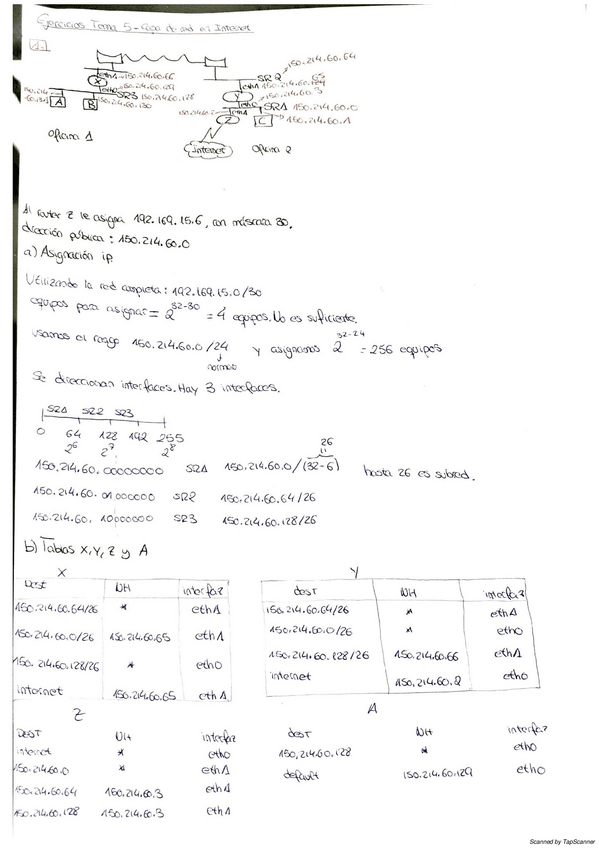 Ejercicios Tema 5 - Capa de red en Internet
1.
150.214.60.64
eth1 150.214.60.66
SR2
65
X
eth0 150.214.60.129
eth1 150.214.60.
150.214.60.131
SR3 150.214.60.128
Y
150.214.60.3
A
B
150.214.60.130
150.214.60.2
eth1
SR1 150.214.60.0
Z
C
150.214.60.1
Oficina 1
Internet
Oficina 2
Al router Z le asigna 192.169.15.6, con máscara 30.
dirección pública: 150.214.60.0
a) Asignación ip
Utilizando la red completa: 192.169.15.0/30
equipos para asignar = 2^32-30 = 4 equipos. No es suficiente.
usamos el rango 150.214.60.0/24 y asignamos 2^32-24 = 256 equipos
normal
Se direccionan interfaces. Hay 3 interfaces.
SR1 SR2 SR3
0 64 128 192 255
2^6 2^7 2^8
26
150.214.60.00000000 SR1 150.214.60.0/(32-6) hasta 26 es subred.
150.214.60.01000000 SR2 150.214.60.64/26
150.214.60.10000000 SR3 150.214.60.128/26
b) Tablas X, Y, Z y A
X
Dest NH interfaz
150.214.60.64/26 * eth1
150.214.60.0/26 150.214.60.65 eth1
150.214.60.128/26 * eth0
internet 150.214.60.65 eth1
Y
dest NH interfaz
150.214.60.64/26 * eth1
150.214.60.0/26 * eth0
150.214.60.128/26 150.214.60.66 eth1
internet 150.214.60.2 eth0
Z
Dest NH interfaz
internet * eth0
150.214.60.0 * eth1
150.214.60.64 150.214.60.3 eth1
150.214.60.128 150.214.60.3 eth1
A
dest NH interfaz
150.214.60.128 * eth0
default 150.214.60.129 eth0
Scanned by TapScanner